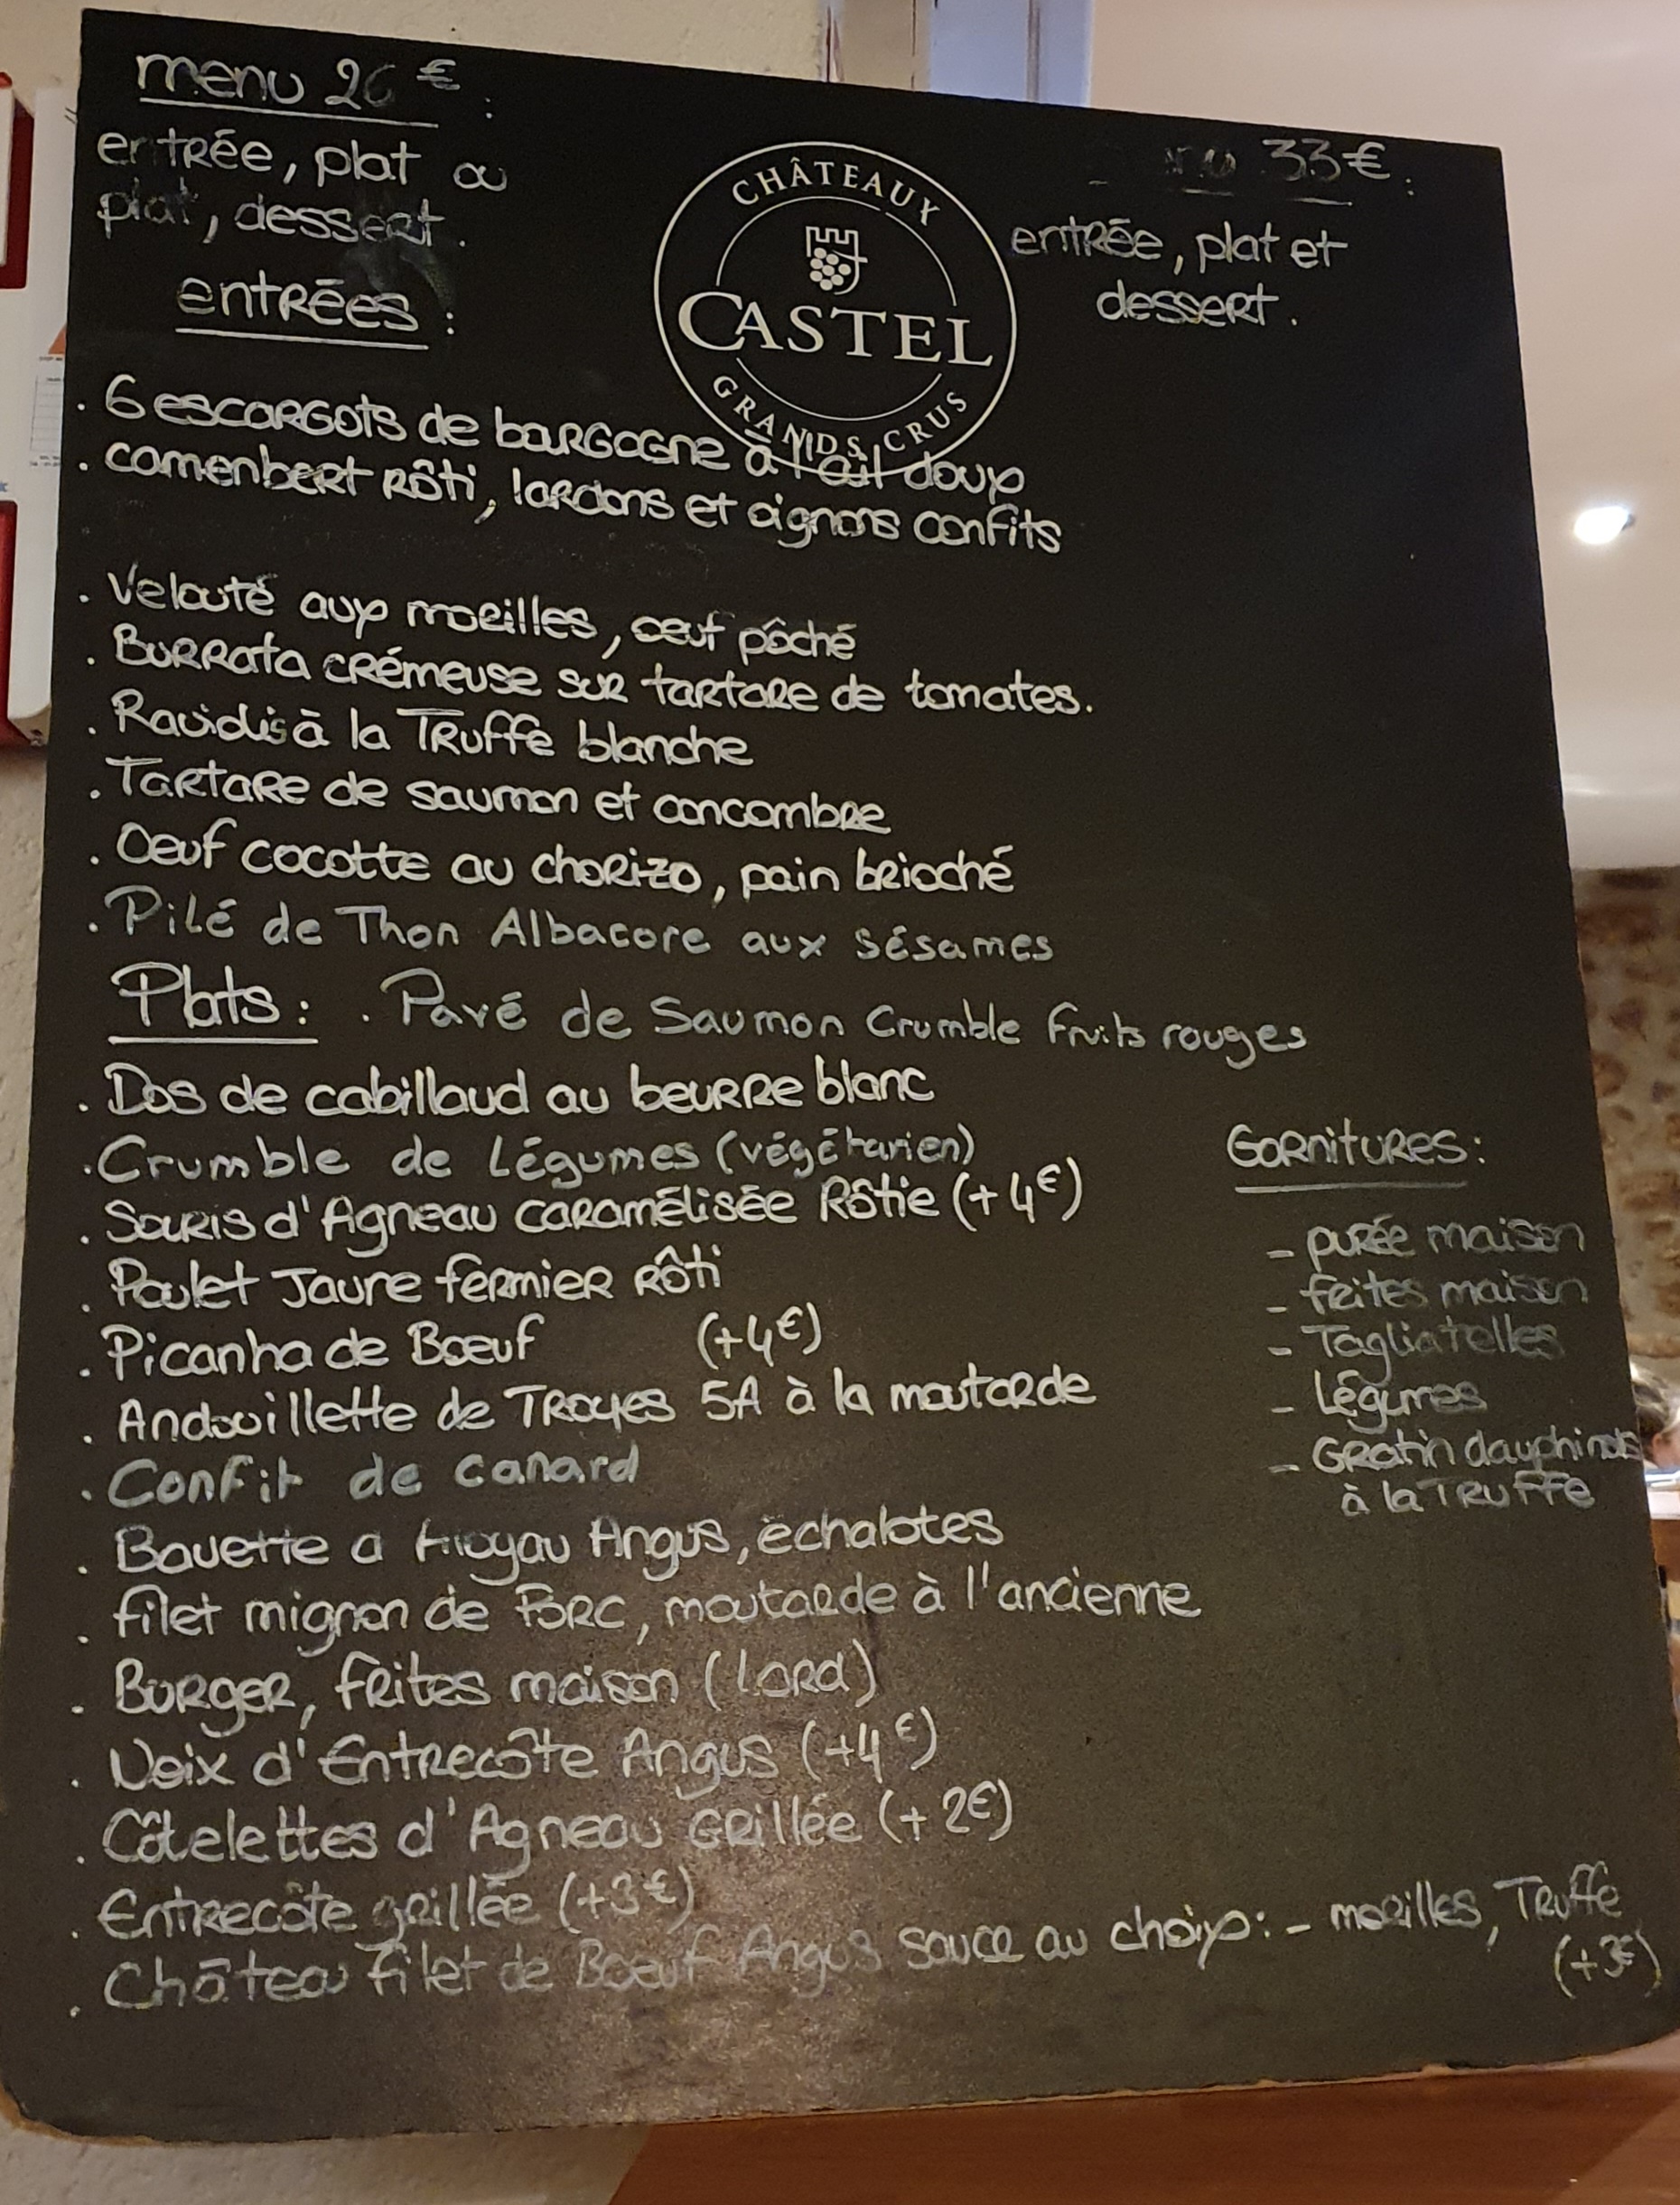 menu 26 € :
entrée, plat ou
plat, dessert.
33€ :
entrée, plat et
dessert.
CHÂTEAUX
CASTEL
GRANDS CRUS
entrées :
. 6 escargots de bourgogne à l'ail doux
. camenbert rôti, lardons et oignons confits
. Velouté aux morilles, oeuf pôché
. Burrata crémeuse sur tartare de tomates.
. Raviolis à la Truffe blanche
. Tartare de saumon et concombre
. Oeuf cocotte au chorizo, pain brioché
. Pilé de Thon Albacore aux sésames
Plats : . Pavé de Saumon Crumble Fruits rouges
. Dos de cabillaud au beurre blanc
. Crumble de Légumes (végétarien)
. Souris d'Agneau caramélisée Rôtie (+4€)
. Poulet Jaune fermier Rôti
. Picanha de Boeuf (+4€)
. Andouillette de Troyes 5A à la moutarde
. Confit de canard
. Bavette d'Aloyau Angus, échalotes
. filet mignon de Porc, moutarde à l'ancienne
. Burger, frites maison (Lard)
. Noix d'Entrecôte Angus (+4€)
. Côtelettes d'Agneau Grillée (+2€)
. Entrecôte grillée (+3€)
. Château Filet de Boeuf Angus sauce au choix : - morilles, Truffe
(+3€)
Garnitures :
- purée maison
- frites maison
- Tagliatelles
- Légumes
- Gratin dauphinois
à la Truffe